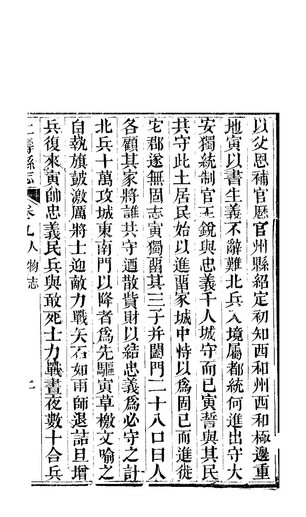 以父恩補官歷官州縣紹定初知西和州西和極邊重
地寅以書生義不辭難北兵入境屬都統何進出守大
安獨統制官王銳與忠義千人城守而已寅誓與其民
共守此土居民始以進留家城中恃以為固已而進徙
宅郡遂無固志寅獨留其三子并闔門二十八口曰人
各顧其家將誰共守迺散貲財以結忠義為必守之計
北兵十萬攻城東南門以降者為先驅寅草檄文喻之
自執旗鼓激厲將士迎敵力戰矢石如雨師退詰旦增
兵復來寅帥忠義民兵與敢死士力戰晝夜數十合兵
壽縣志 卷九 人物志 二